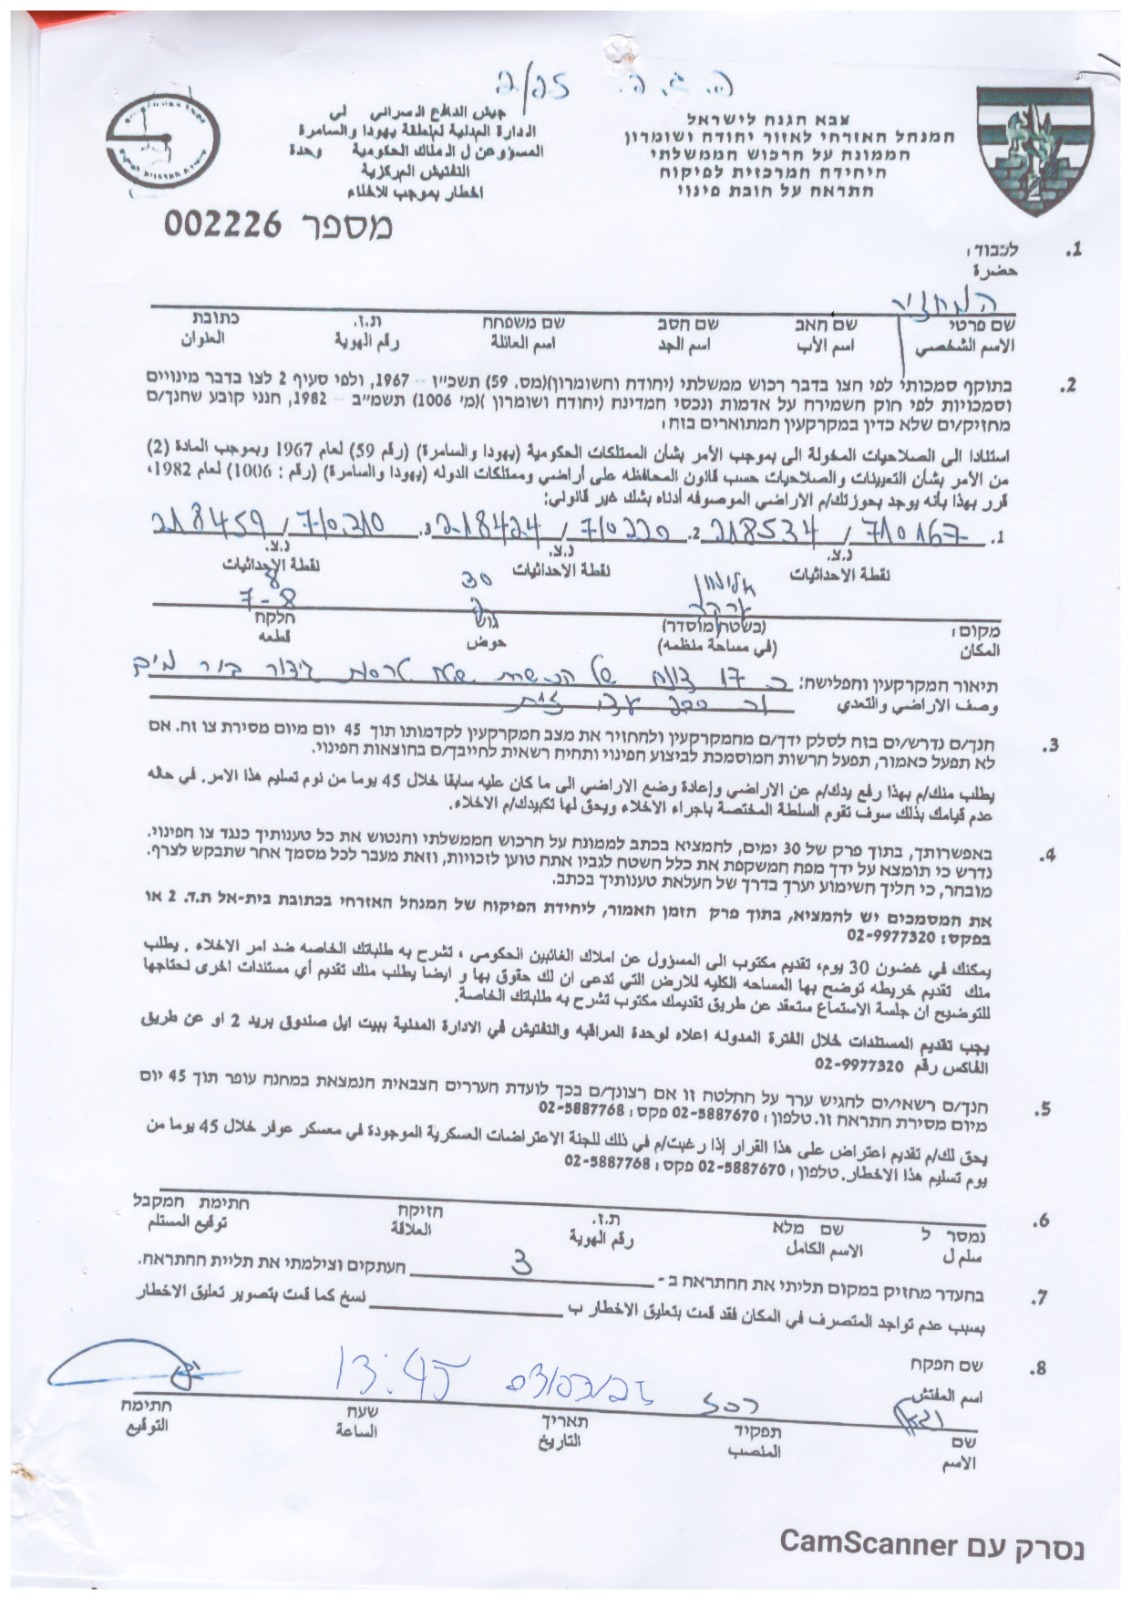 ה.ג.ה. 2/25
צבא הגנה לישראל
המנהל האזרחי לאזור יהודה ושומרון
הממונה על הרכוש הממשלתי
היחידה המרכזית לפיקוח
התראה על חובת פינוי
جيش الدافع السرائي لي
الدارة المدلية لملطقة يهودا والسامرة
المسؤوعن ل الملاك الحكومية وحدة
التفتيش المركزية
اخطار بموجب للاخلاء
מספר 002226
1. לכבוד:
حضرة
המחזיק
שם פרטי שם האב שם הסב שם משפחה ת.ז. כתובת
الاسم الشخصي اسم الأب اسم الجد اسم العائلة رقم الهوية العلوان
2. בתוקף סמכותי לפי הצו בדבר רכוש ממשלתי (יהודה והשומרון)(מס. 59) תשכ"ז - 1967, ולפי סעיף 2 לצו בדבר מינויים
וסמכויות לפי חוק השמירה על אדמות ונכסי המדינה (יהודה ושומרון )(מ' 1006) תשמ"ב - 1982, הנני קובע שהנך/ם
מחזיק/ים שלא כדין במקרקעין המתוארים בזה:
استنادا الى الصلاحيات المخولة الى بموجب الأمر بشأن الممتلكات الحكومية (يهودا والسامرة) (رقم 59) لعام 1967 وبموجب المادة (2)
من الأمر بشأن التعيينات والصلاحيات حسب قانون المحافظه على أراضي وممتلكات الدوله (يهودا والسامرة) (رقم : 1006) لعام 1982،
قرر بهذا بأنه يوجد بحوزتك/م الاراضي الموصوفه أدناه بشك غير قانولي:
1. 710167 / 218534 2. 710220 / 218424 3. 710310 / 218459
נ.צ. נ.צ. נ.צ.
نقطة الاحداثيات نقطة الاحداثيات نقطة الاحداثيات
30 8
7-8
מקום: (בשטח מוסדר) גוש חלקה
المكان (في مساحة منظمه) حوض قطعه
תיאור המקרקעין והפלישה: כ 17 דונם של הכשרת שטח טרסות גידור בור מים
وصف الاراضي والتعدي עצי זית
3. הנך/ם נדרש/ים בזה לסלק ידך/ם מהמקרקעין ולהחזיר את מצב המקרקעין לקדמותו תוך 45 יום מיום מסירת צו זה. אם
לא תפעל כאמור, תפעל הרשות המוסמכת לביצוע הפינוי ותהיה רשאית לחייבך/ם בהוצאות הפינוי.
يطلب منك/م بهذا رفع يدك/م عن الاراضي وإعادة وضع الاراضي الى ما كان عليه سابقا خلال 45 يوما من نوم تسليم هذا الامر. في حاله
عدم قيامك بذلك سوف تقوم السلطة المختصة باجراء الاخلاء ويحق لها تكبيدك/م الاخلاء.
4. באפשרותך, בתוך פרק של 30 ימים, להמציא בכתב לממונה על הרכוש הממשלתי והנטוש את כל טענותיך כנגד צו הפינוי.
נדרש כי תומצא על ידך מפה המשקפת את כלל השטח לגביו אתה טוען לזכויות, וזאת מעבר לכל מסמך אחר שתבקש לצרף.
מובהר, כי הליך השימוע יערך בדרך של העלאת טענותיך בכתב.
את המסמכים יש להמציא, בתוך פרק הזמן האמור, ליחידת הפיקוח של המנהל האזרחי בכתובת בית-אל ת.ד. 2 או
בפקס: 02-9977320
يمكنك في غضون 30 يوم، تقديم مكتوب الى المسؤول عن املاك الغائبين الحكومي ، تشرح به طلباتك الخاصه ضد امر الاخلاء . يطلب
منك تقديم خريطه توضح بها المساحه الكليه للارض التي تدعى ان لك حقوق بها و ايضا يطلب منك تقديم أي مستندات اخرى لحتاجها
للتوضيح ان جلسة الاستماع ستعقد عن طريق تقديمك مكتوب تشرح به طلباتك الخاصة.
يجب تقديم المستلدات خلال الفترة المدوله اعلاه لوحدة المراقبه والتفتيش في الادارة المدلية ببيت ايل صلدوق بريد 2 او عن طريق
الفاكس رقم 02-9977320
5. הנך/ם רשאי/ים להגיש ערר על החלטה זו אם רצונך/ם בכך לועדת העררים הצבאית הנמצאת במחנה עופר תוך 45 יום
מיום מסירת התראה זו. טלפון: 02-5887670 פקס: 02-5887768
يحق لك/م تقديم اعتراض على هذا القرار إذا رغبت/م في ذلك للجنة الاعتراضات العسكرية الموجودة في معسكر عوفر خلال 45 يوما من
يوم تسليم هذا الاخطار. טלפון: 02-5887670 פקס: 02-5887768
6. נמסר ל שם מלא ת.ז. הזיקה חתימת המקבל
سلم ل الاسم الكامل رقم الهوية العلاقة توقيع المستلم
7. בהעדר מחזיק במקום תליתי את ההתראה ב - 3 העתקים וצילמתי את תליית ההתראה.
بسبب عدم تواجد المتصرف في المكان فقد قمت بتعليق الاخطار ب نسخ كما قمت بتصوير تعليق الاخطار
8. שם הפקח
اسم المفتش
רכז 03/03/25 13:45
שם תפקיד תאריך שעה חתימה
الاسم الملصب التاريخ الساعة التوقيع
נסרק עם CamScanner